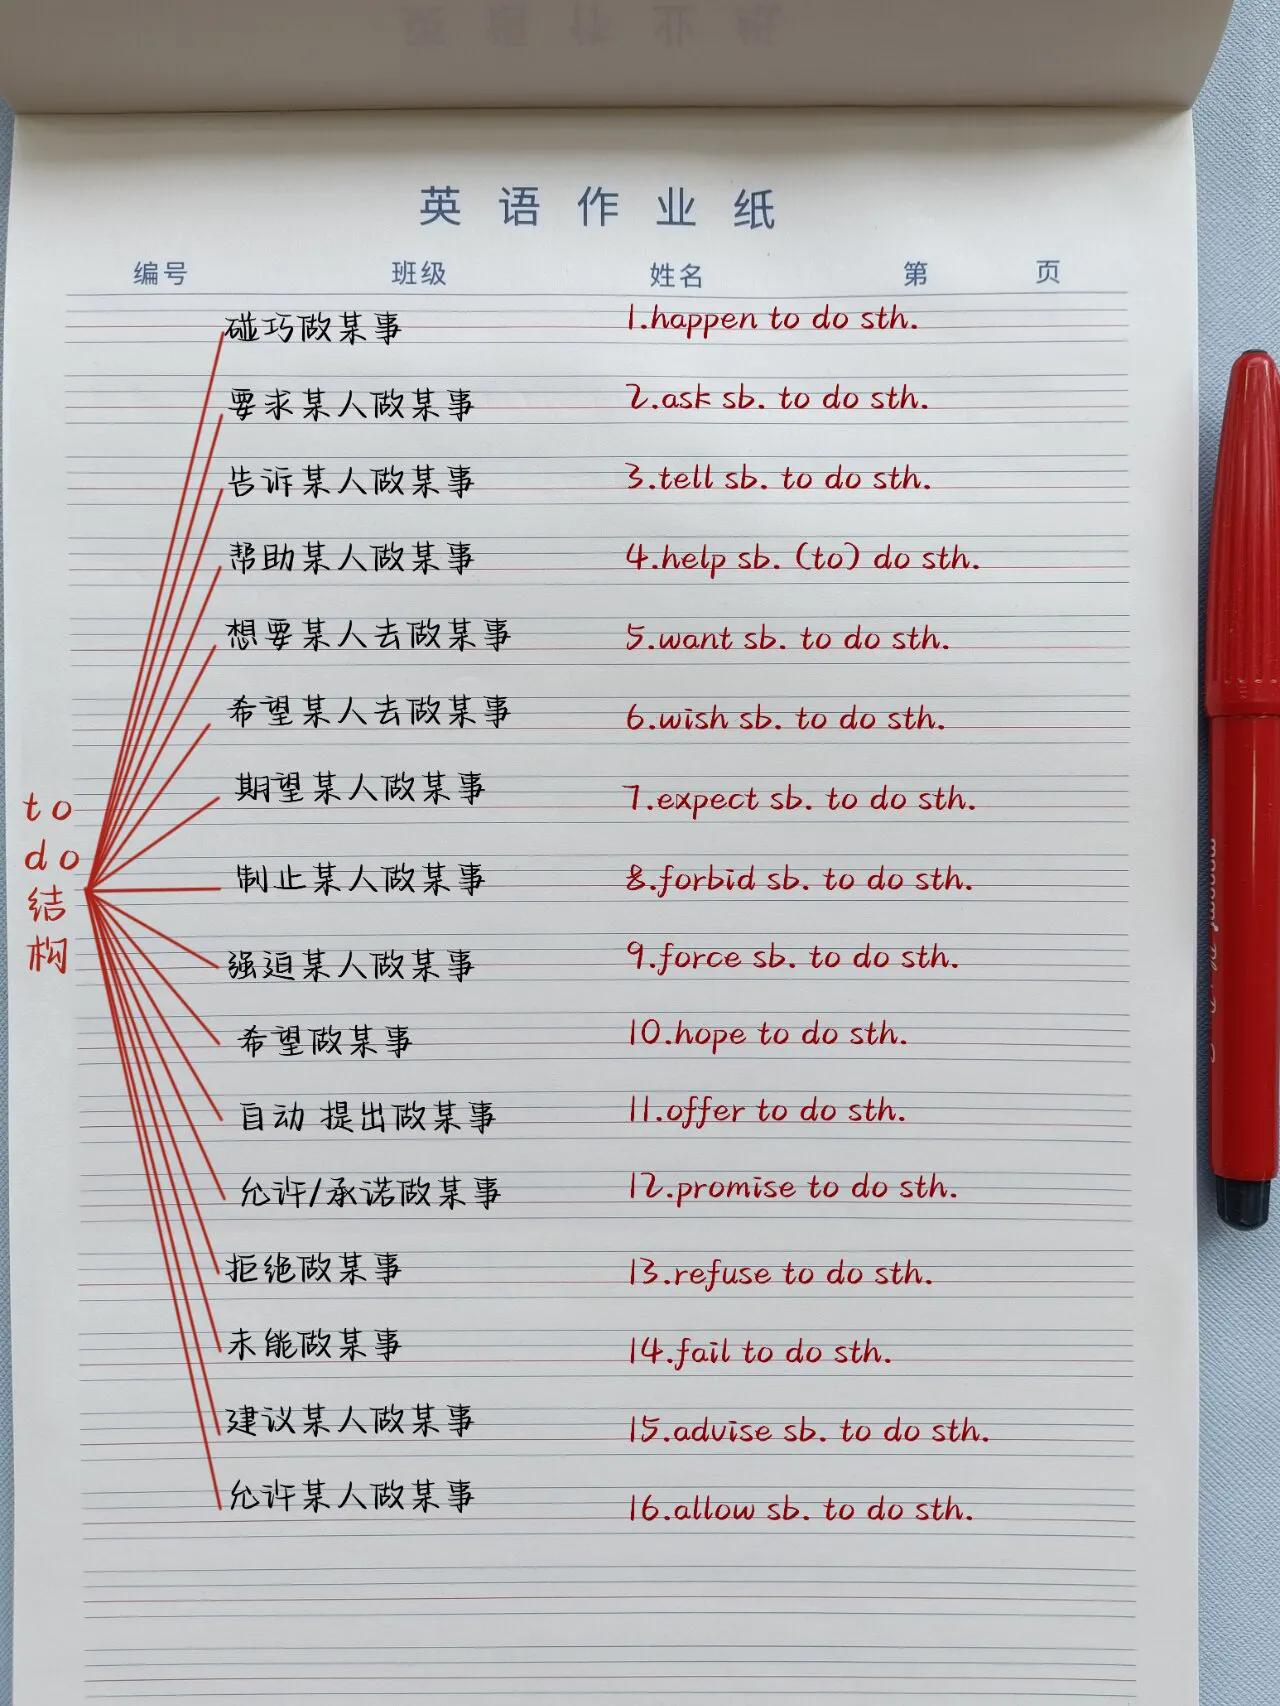 英语作业纸
编号 班级 姓名 第 页
碰巧做某事 1.happen to do sth.
要求某人做某事 2.ask sb. to do sth.
告诉某人做某事 3.tell sb. to do sth.
帮助某人做某事 4.help sb. (to) do sth.
想要某人去做某事 5.want sb. to do sth.
希望某人去做某事 6.wish sb. to do sth.
期望某人做某事 7.expect sb. to do sth.
to
do
结
构
制止某人做某事 8.forbid sb. to do sth.
强迫某人做某事 9.force sb. to do sth.
希望做某事 10.hope to do sth.
自动 提出做某事 11.offer to do sth.
允许/承诺做某事 12.promise to do sth.
拒绝做某事 13.refuse to do sth.
未能做某事 14.fail to do sth.
建议某人做某事 15.advise sb. to do sth.
允许某人做某事 16.allow sb. to do sth.